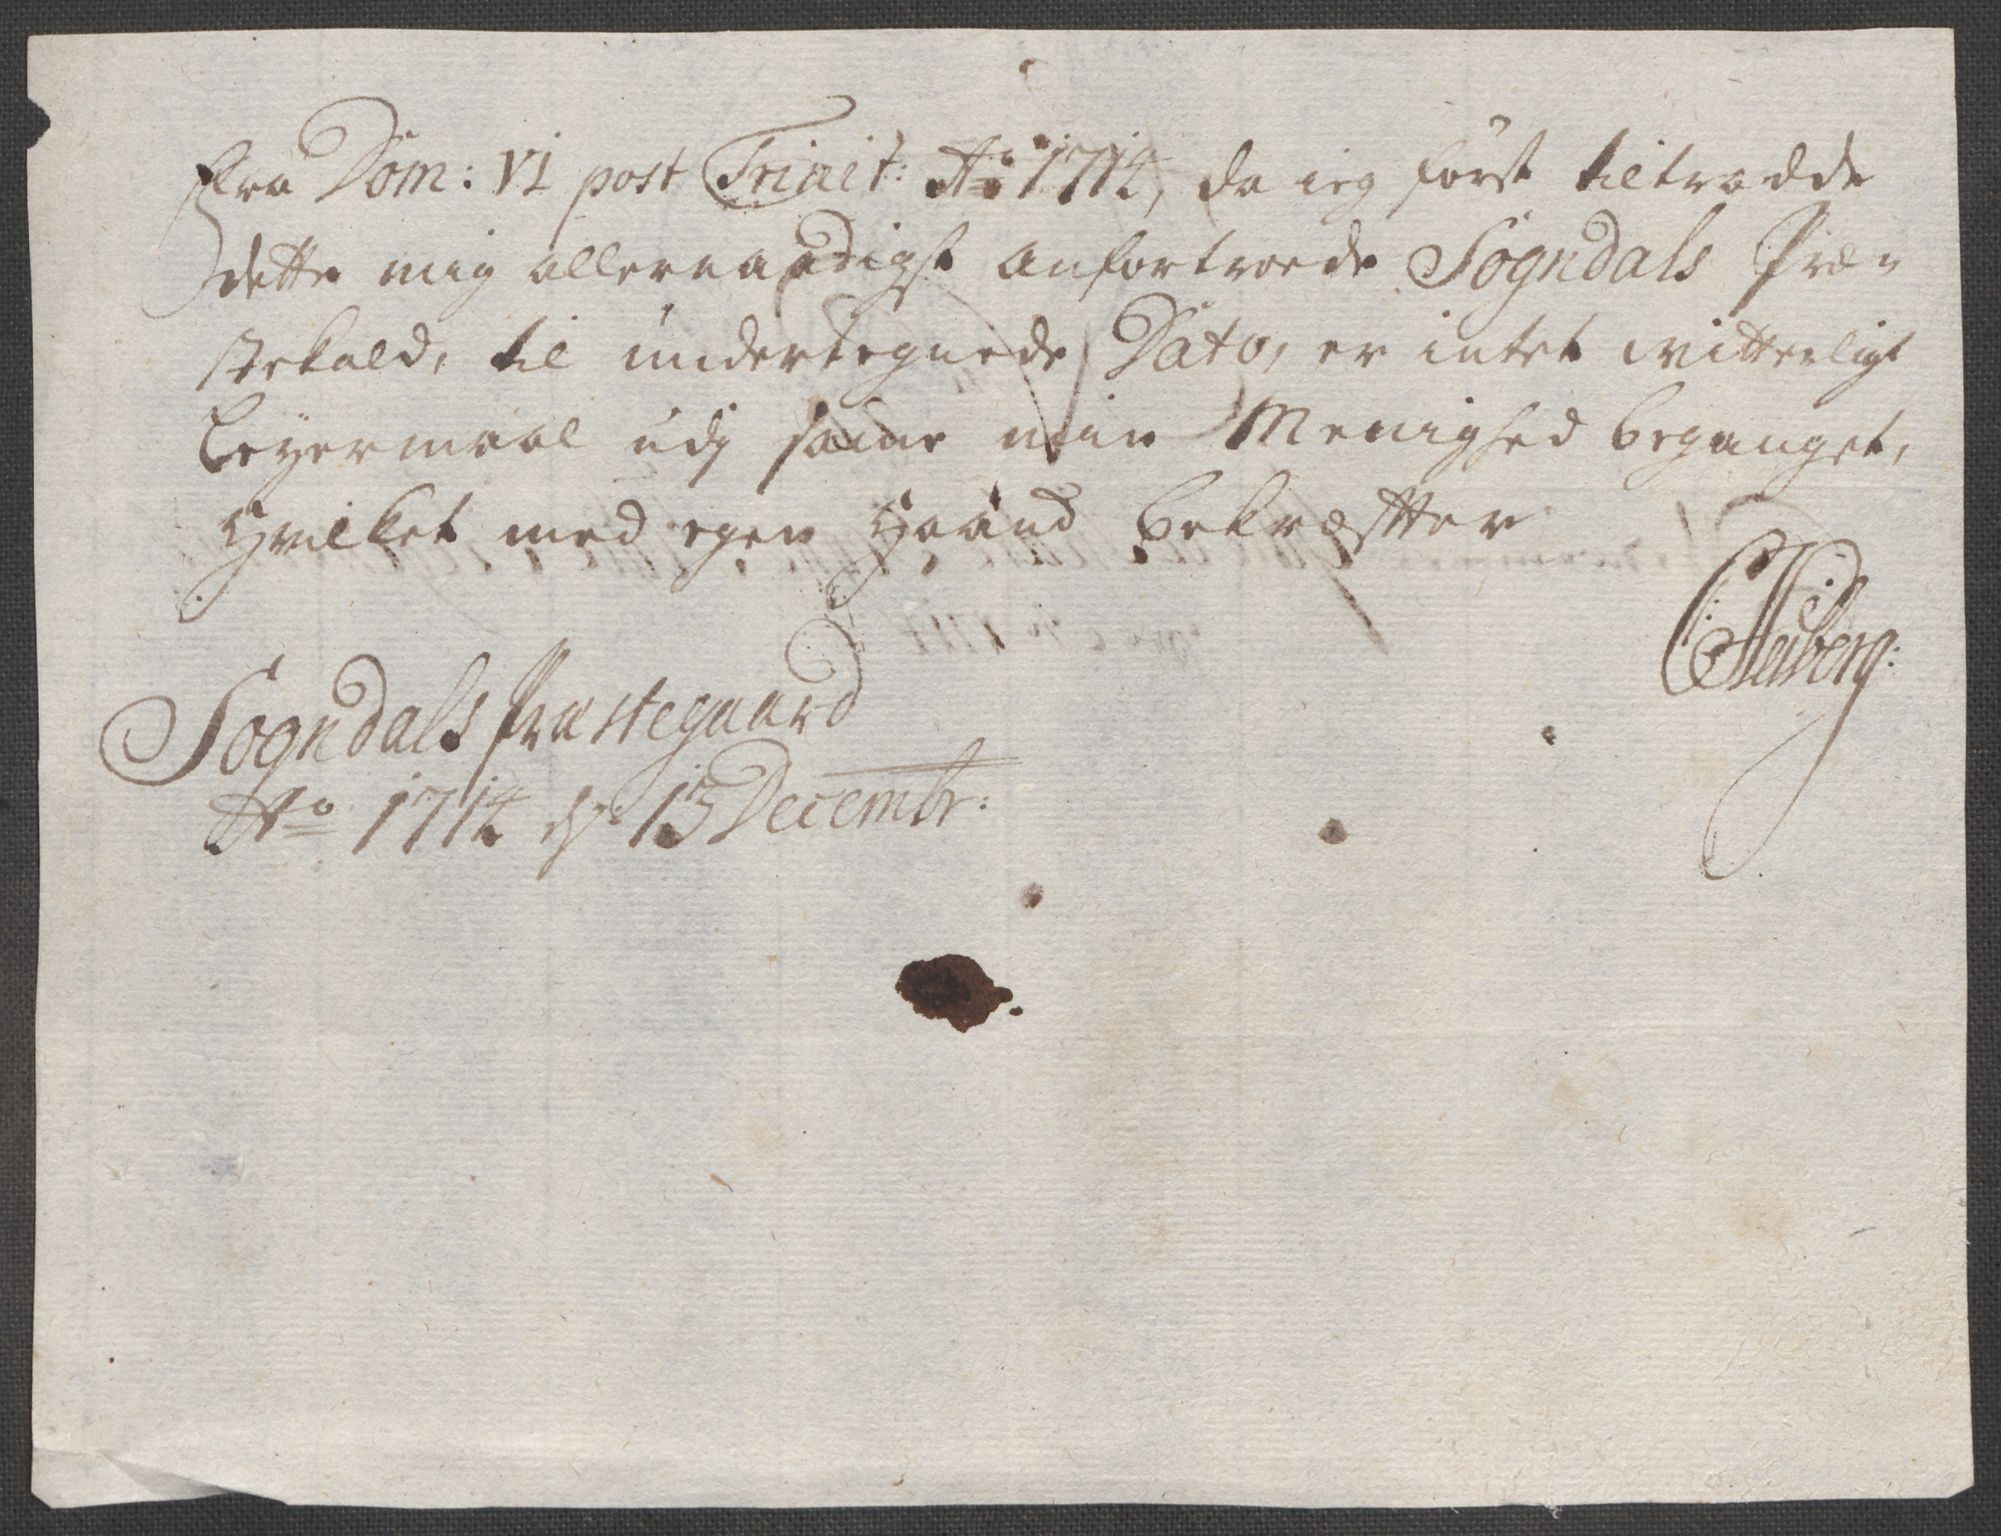 Fra Dom: VI post Trinit: Ao 1714, da ieg först tiltradde
dette mig allernaadigst anfortroede Sogndals Præ-
stekald, til undertegnede Dato, er intet witterligt
Leyermaal udj samme min Menighed beganget,
Hvilket med egen Haand bekræfter
CHeiberg:
Sogndals Præstegaard
Ao 1714 d 13 Decembr: